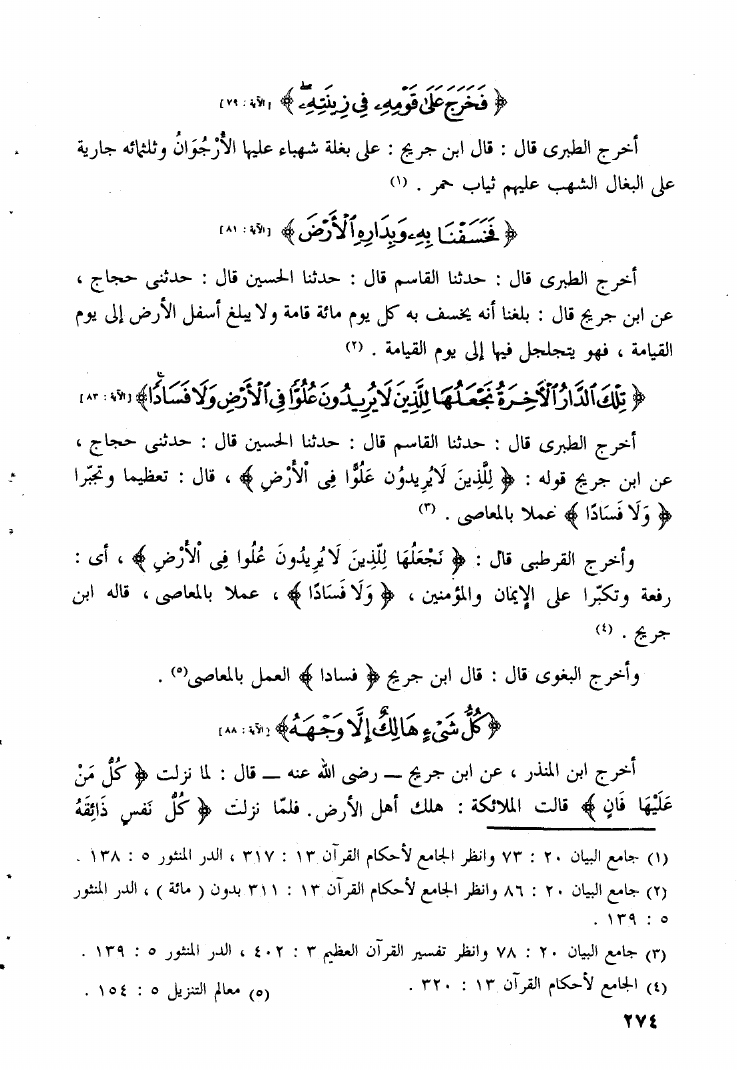 ﴿ فَخَرَجَ عَلَىٰ قَوْمِهِۦ فِى زِينَتِهِۦۖ ﴾ [الآية : ٧٩]
أخرج الطبرى قال : قال ابن جريج : على بغلة شهباء عليها الأُرْجُوَانُ وثلثمائه جارية
على البغال الشهب عليهم ثياب حمر . (١)
﴿ فَخَسَفْنَا بِهِۦ وَبِدَارِهِ ٱلْأَرْضَ ﴾ [الآية : ٨١]
أخرج الطبرى قال : حدثنا القاسم قال : حدثنا الحسين قال : حدثنى حجاج ،
عن ابن جريج قال : بلغنا أنه يخسف به كل يوم مائة قامة ولا يبلغ أسفل الأرض إلى يوم
القيامة ، فهو يتجلجل فيها إلى يوم القيامة . (٢)
﴿ تِلْكَ ٱلدَّارُ ٱلْأَخِرَةُ نَجْعَلُهَا لِلَّذِينَ لَا يُرِيدُونَ عُلُوًّا فِى ٱلْأَرْضِ وَلَا فَسَادًا ﴾ [الآية : ٨٣]
أخرج الطبرى قال : حدثنا القاسم قال : حدثنا الحسين قال : حدثنى حجاج ،
عن ابن جريج قوله : ﴿ لِلَّذِينَ لَايُرِيدوُن عَلُوًّا فِى اْلأَرْضِ ﴾ ، قال : تعظيما وتجبّرا
﴿ وَلَا فَسَادًا ﴾ عملا بالمعاصى . (٣)
وأخرج القرطبى قال : ﴿ نَجْعَلُهَا لِلَّذِينَ لَا يُرِيدُونَ عُلُوا فِى اْلأَرْضِ ﴾ ، أى :
رفعة وتكبّرا على الإيمان والمؤمنين ، ﴿ وَلَا فَسَادًا ﴾ ، عملا بالمعاصى ، قاله ابن
جريج . (٤)
وأخرج البغوى قال : قال ابن جريج ﴿ فسادا ﴾ العمل بالمعاصى(٥) .
﴿ كُلُّ شَىْءٍ هَالِكٌ إِلَّا وَجْهَهُ ﴾ [الآية : ٨٨]
أخرج ابن المنذر ، عن ابن جريج – رضى الله عنه – قال : لما نزلت ﴿ كُلُّ مَنْ
عَلَيْهَا فَانٍ ﴾ قالت الملائكة : هلك أهل الأرض. فلمّا نزلت ﴿ كُلُّ نَفسٍ ذَائِقَهُ
(١) جامع البيان ٢٠ : ٧٣ وانظر الجامع لأحكام القرآن ١٣ : ٣١٧ ، الدر المنثور ٥ : ١٣٨ .
(٢) جامع البيان ٢٠ : ٨٦ وانظر الجامع لأحكام القرآن ١٣ : ٣١١ بدون ( مائة ) ، الدر المنثور
٥ : ١٣٩ .
(٣) جامع البيان ٢٠ : ٧٨ وانظر تفسير القرآن العظيم ٣ : ٤٠٢ ، الدر المنثور ٥ : ١٣٩ .
(٤) الجامع لأحكام القرآن ١٣ : ٣٢٠ . (٥) معالم التنزيل ٥ : ١٥٤ .
٢٧٤